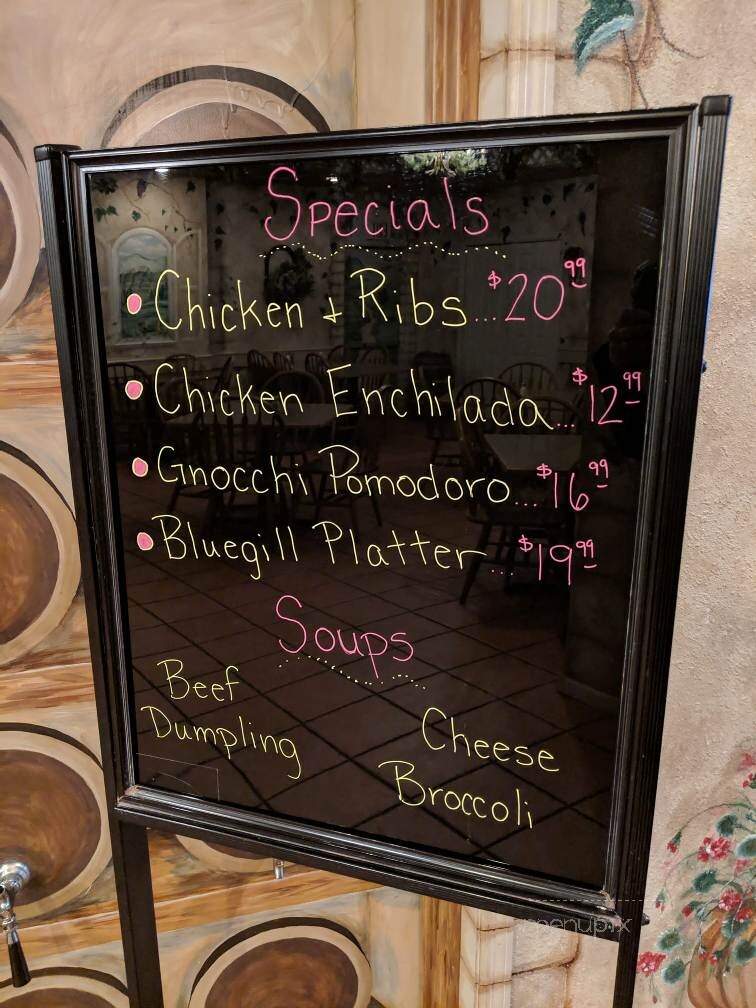 Specials
• Chicken + Ribs...$20.99
• Chicken Enchilada...$12.99
• Gnocchi Pomodoro...$16.99
• Bluegill Platter...$19.99
Soups
Beef
Dumpling
Cheese
Broccoli
menupix